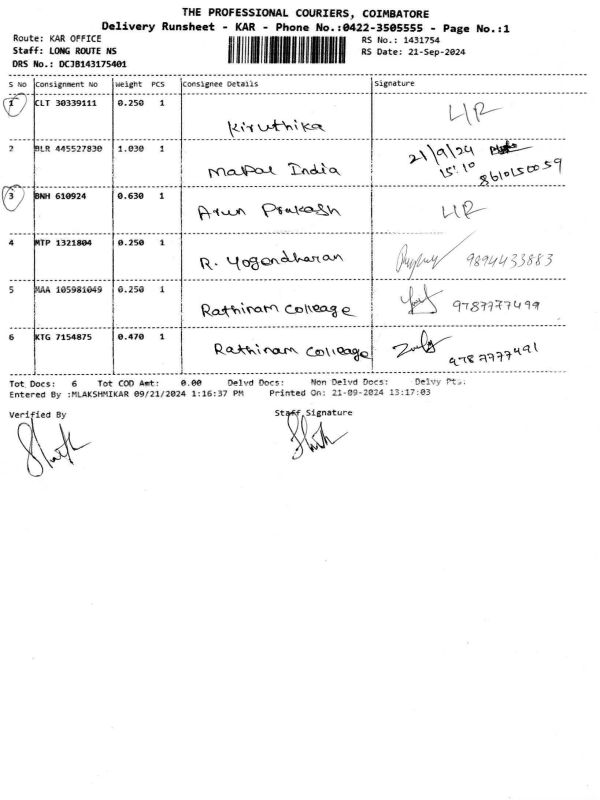 THE PROFESSIONAL COURIERS, COIMBATORE
Delivery Runsheet - KAR - Phone No.:0422-3505555 - Page No.:1
Route: KAR OFFICE RS No.: 1431754
Staff: LONG ROUTE NS RS Date: 21-Sep-2024
DRS No.: DCJB143175401
S No Consignment No Weight PCS Consignee Details Signature
1 CLT 30339111 0.250 1 Kiruthika
2 BLR 445527830 1.030 1 Mapal India 21/9/24 15:10 8610150059
3 BNH 610924 0.630 1 Arun Prakash
4 MTP 1321804 0.250 1 R. Yogendharan 9894433883
5 MAA 105981049 0.250 1 Rathinam Colleage 9787777499
6 KTG 7154875 0.470 1 Rathinam Colleage 9787777491
Tot Docs: 6 Tot COD Amt: 0.00 Delvd Docs: Non Delvd Docs: Delvy Pts:
Entered By :MLAKSHMIKAR 09/21/2024 1:16:37 PM Printed On: 21-09-2024 13:17:03
Verified By Staff Signature